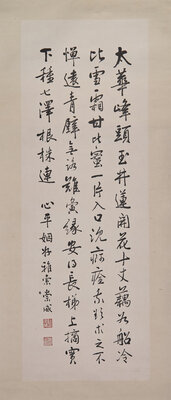 太華峰頭玉井蓮開花十丈藕如船冷
比雪霜甘比蜜一片入口沉痾痊我欲求之不
憚遠青壁無路難夤緣安得長梯上摘實
下種七澤根株連
心平姻好雅索